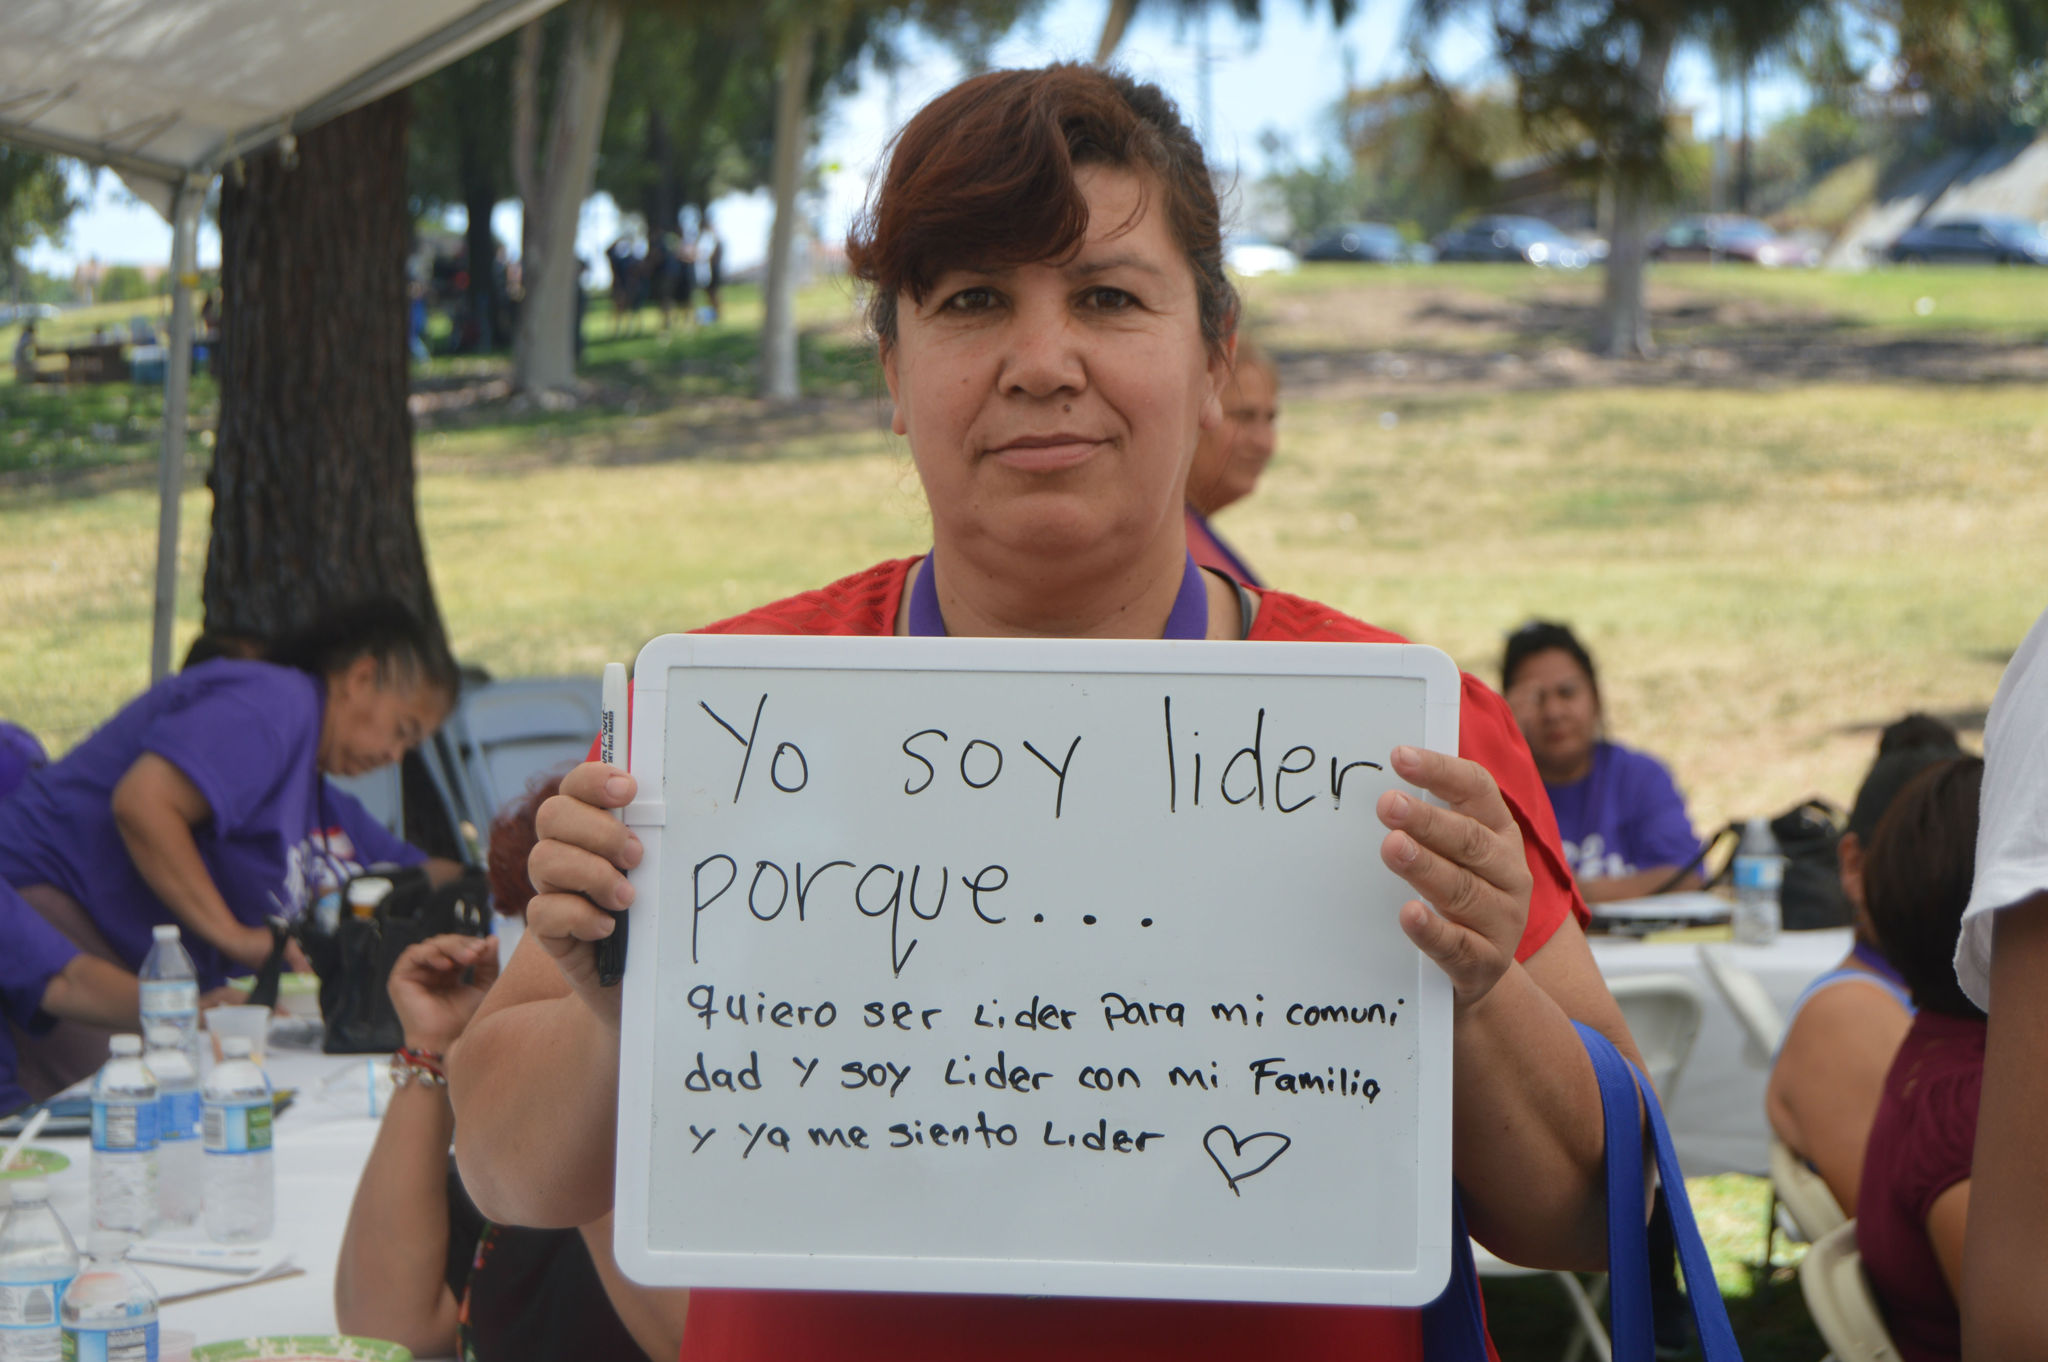 Yo soy lider
porque...
quiero ser Lider para mi comuni
dad y soy Lider con mi Familia
y ya me siento Lider